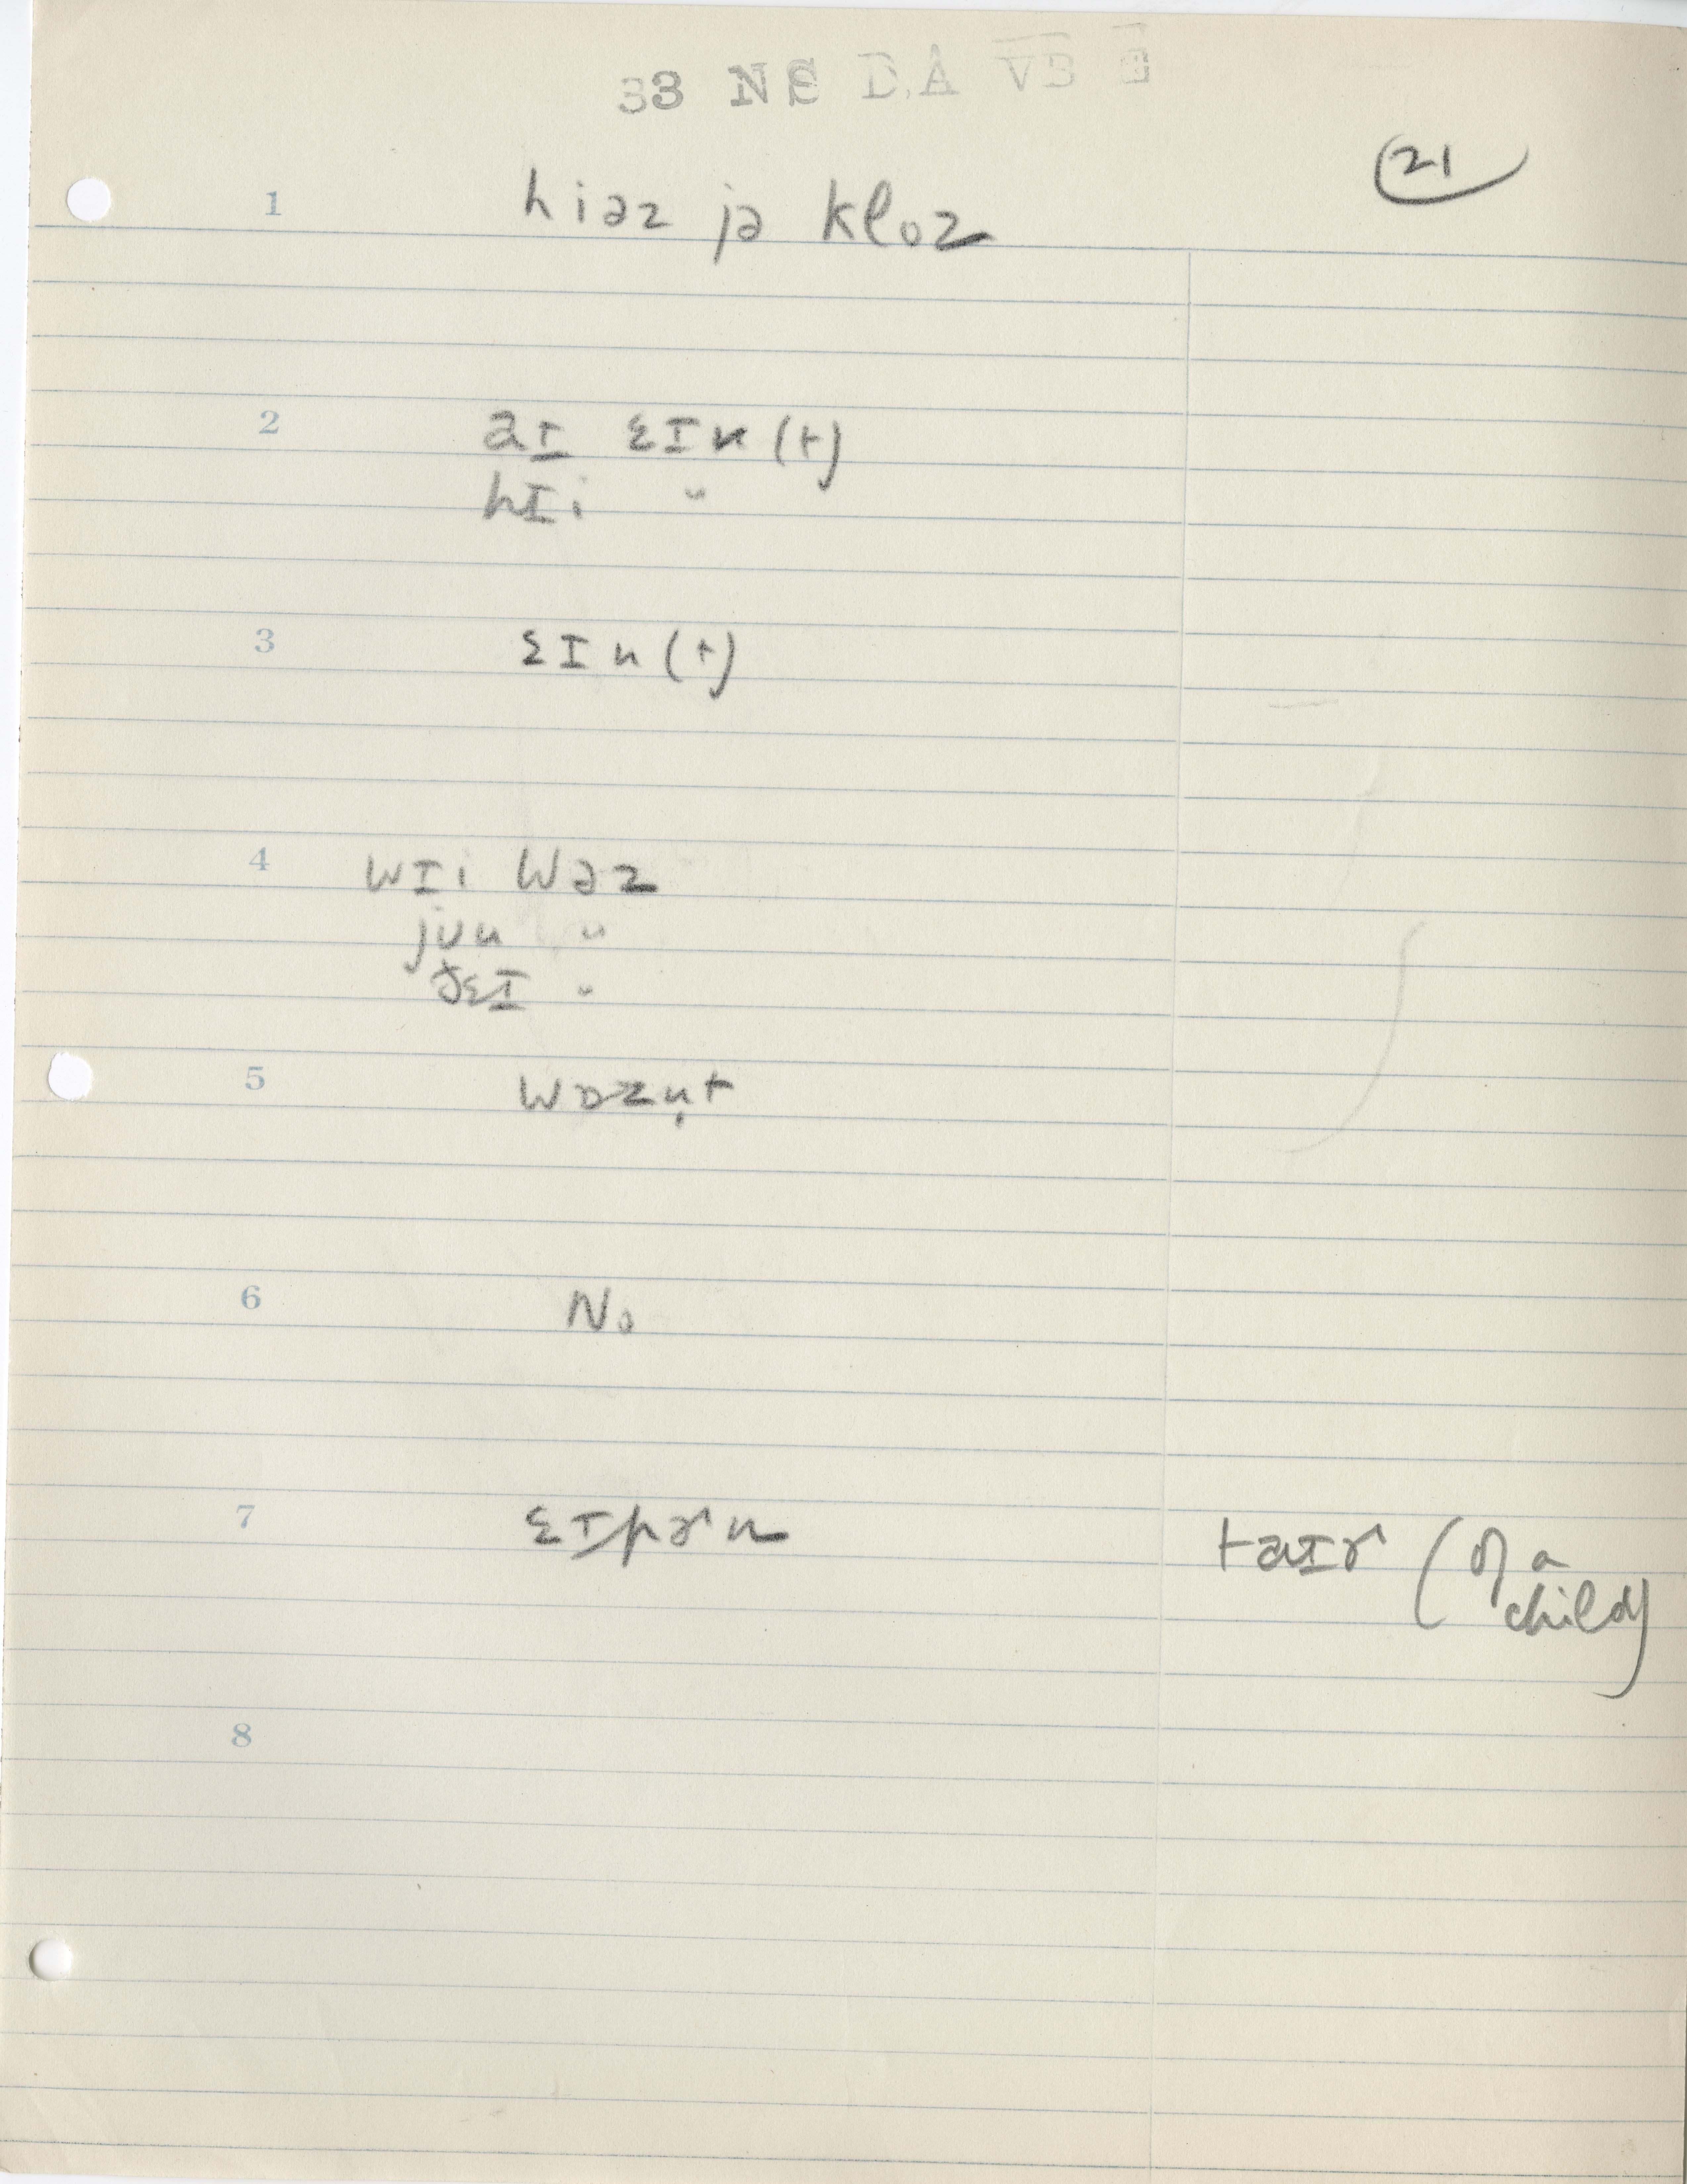 33 NC DA
21
1 hiəz jə kloz
2 aɪ ɛɪn(t)
hɪi "
3 ɛɪn(t)
4 wɪi wəz
jʊu "
ðɛɪ "
5 wɒzn̩t
6 No
7 ɛɪprən taɪr (of a
child)
8